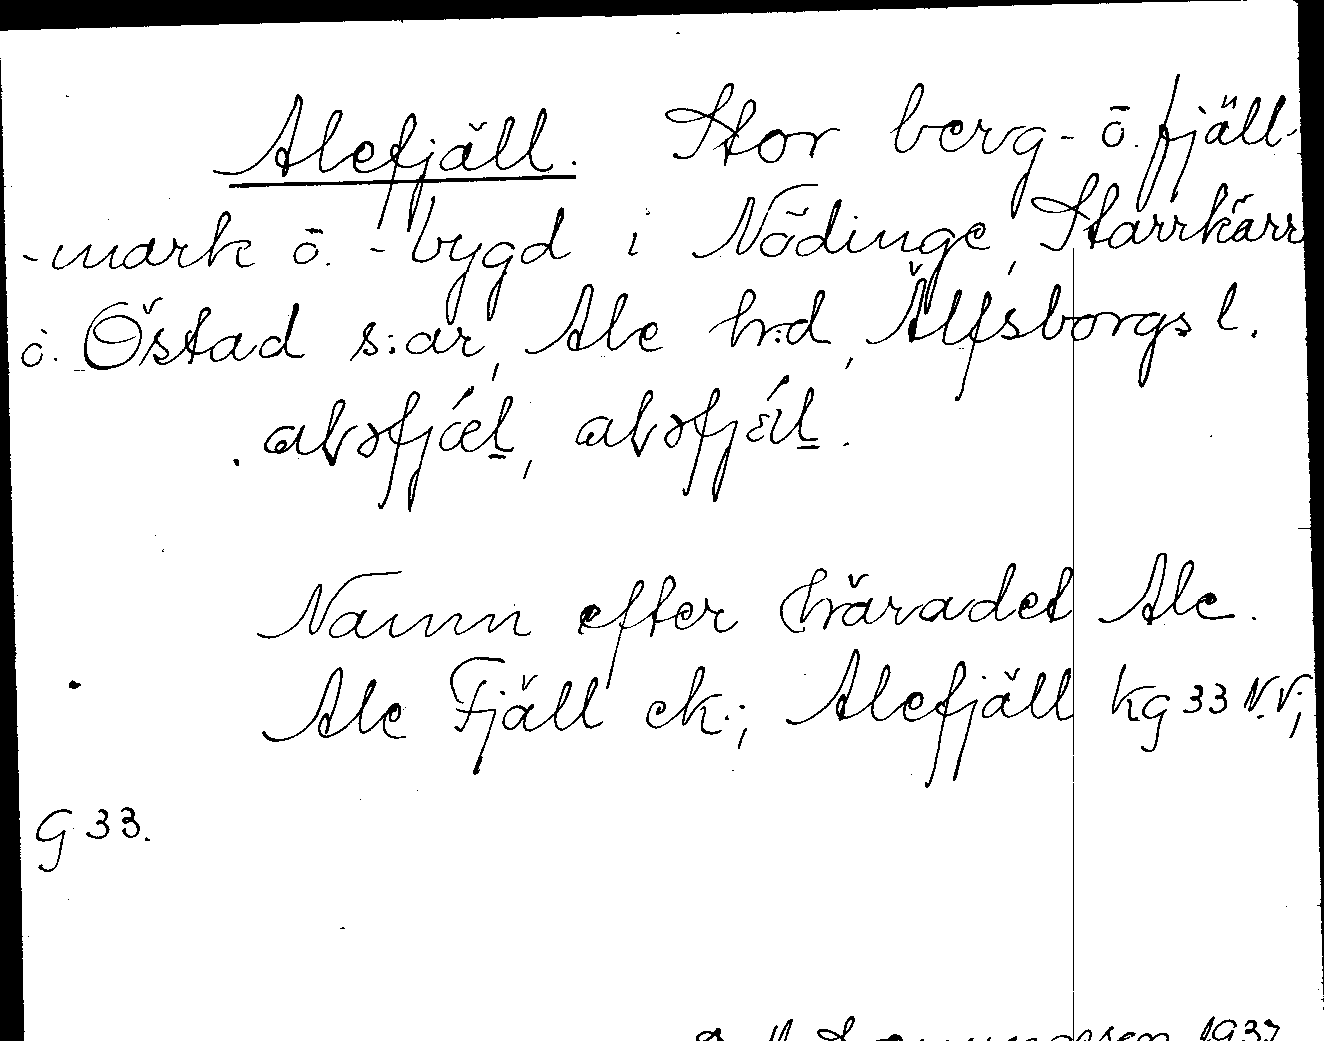 Alefjäll. Stor berg- o. fjäll-
-mark o. -bygd i Nödinge, Starrkärr
o. Östad s:ar, Ale h:d, Älfsborgs l.
Namn efter häradet Ale.
Ale Fjäll ek.; Alefjäll kg 33 N.V;
G 33.
1937